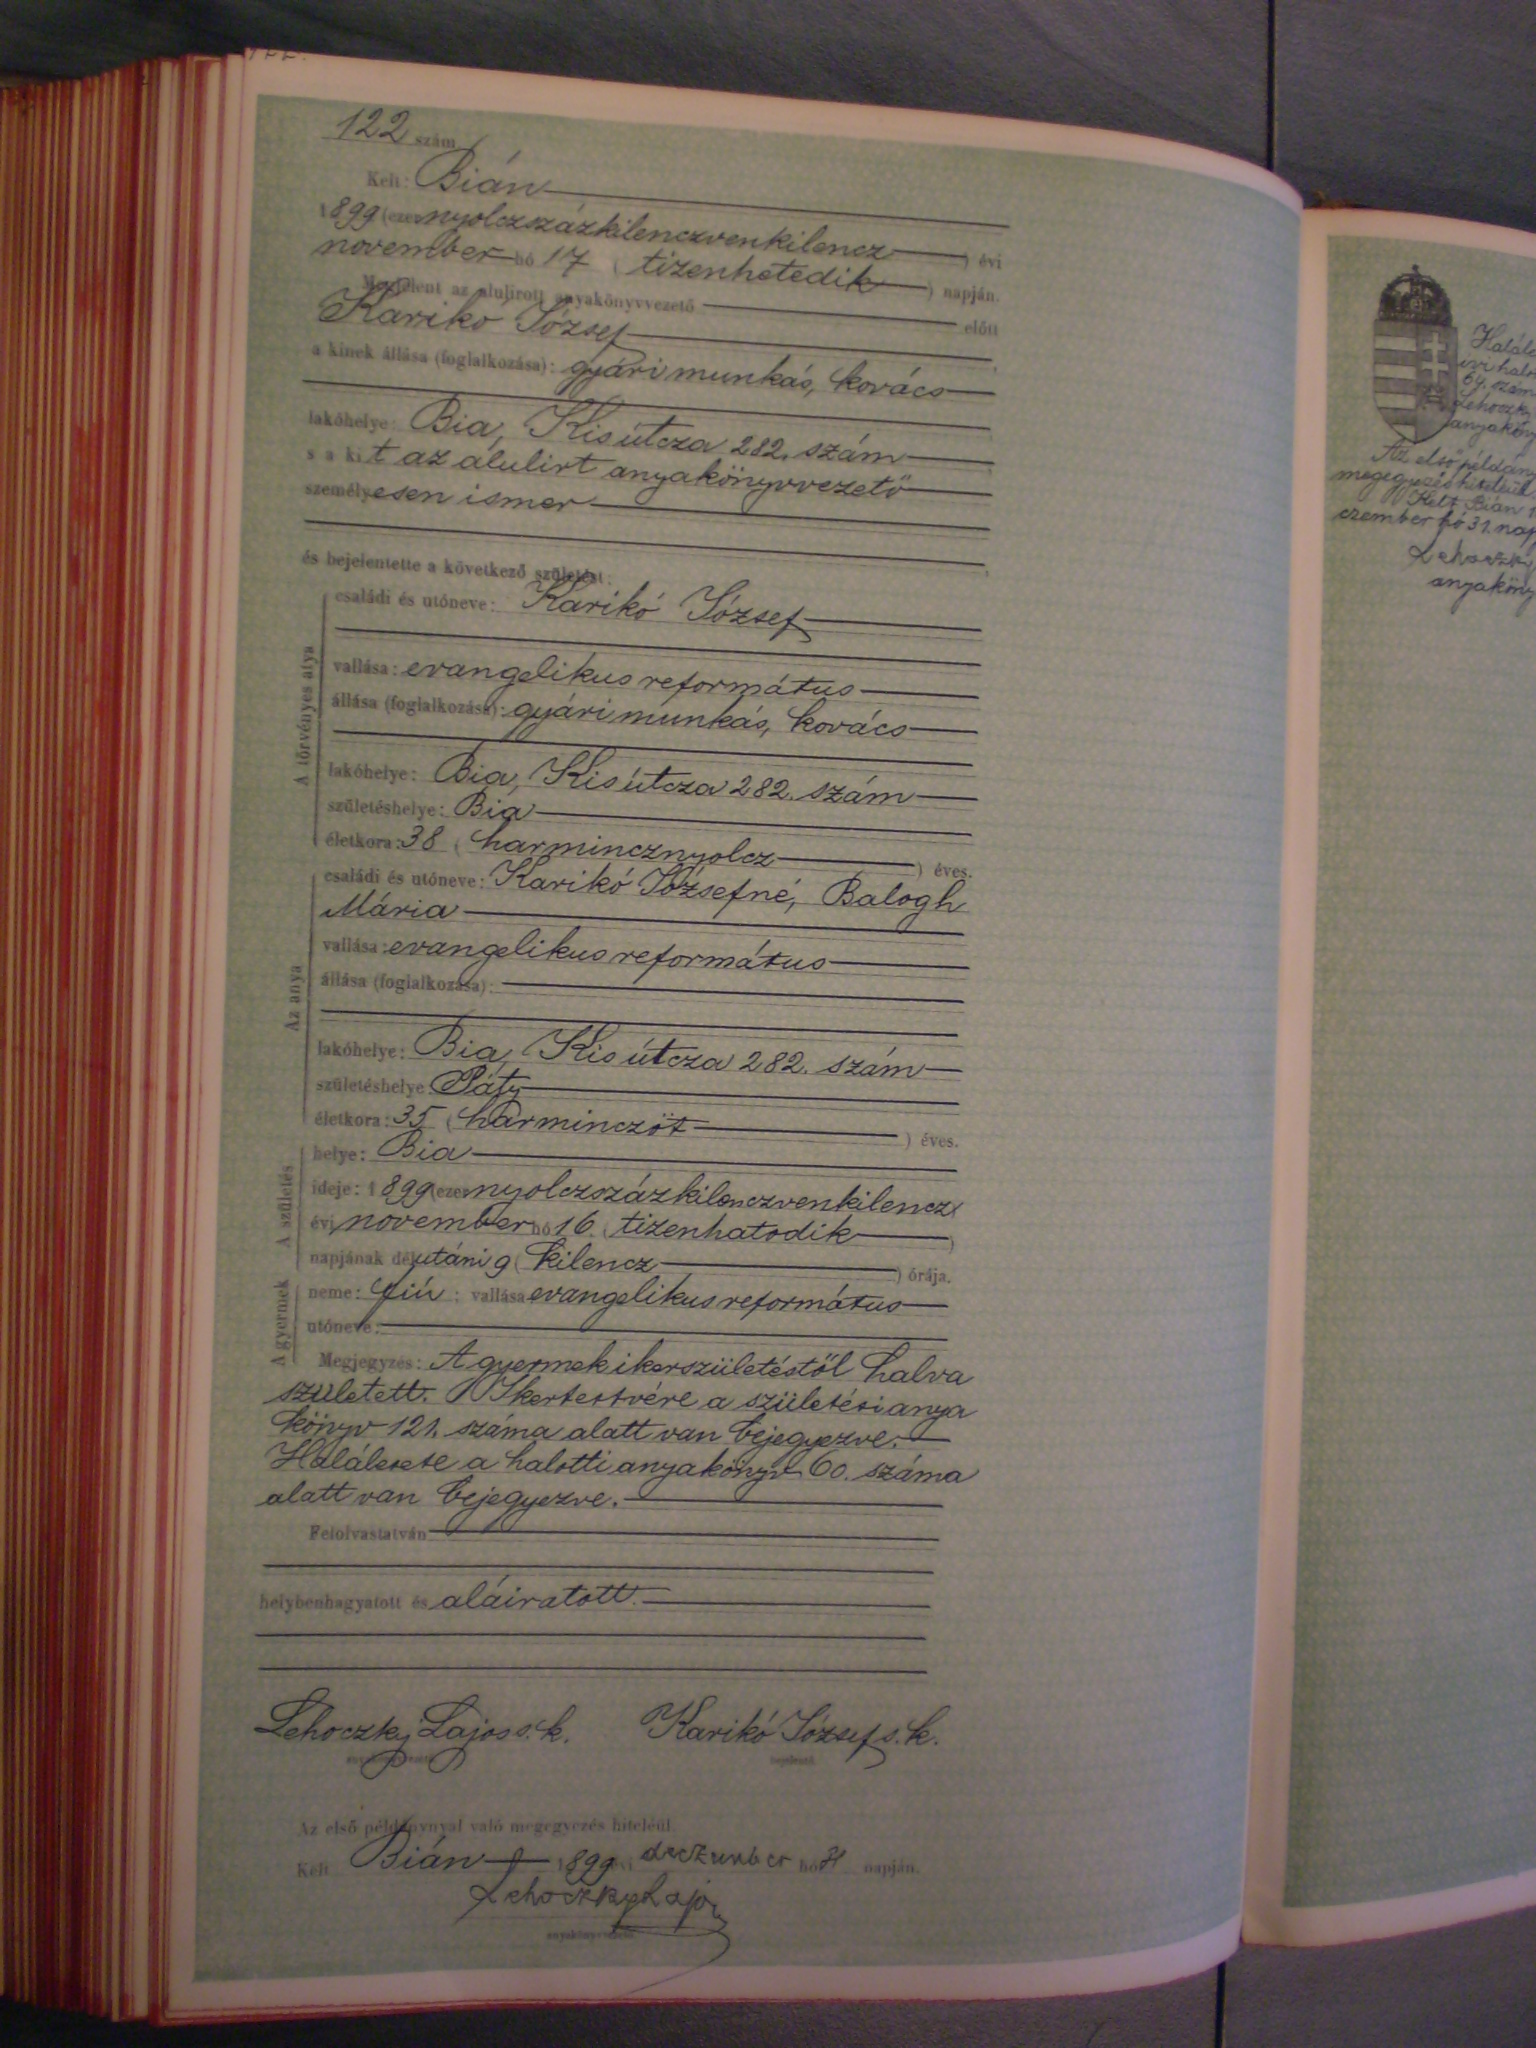 122 szám
Kelt: Bián
1899 (ezer nyolczszázkilenczvenkilencz) évi
november hó 17 (tizenhetedik) napján.
Megjelent az alulirott anyakönyvvezető előtt
Karikó József
a kinek állása (foglalkozása): gyári munkás, kovács
lakóhelye: Bia, Kis útcza 282. szám
s a kit az alulirt anyakönyvvezető
személyesen ismer
és bejelentette a következő születést:
A törvényes atya
családi és utóneve: Karikó József
vallása: evangelikus református
állása (foglalkozása): gyári munkás, kovács
lakóhelye: Bia, Kis útcza 282. szám
születéshelye: Bia
életkora: 38 (harmincznyolcz) éves.
Az anya
családi és utóneve: Karikó Józsefné, Balogh
Mária
vallása: evangelikus református
állása (foglalkozása):
lakóhelye: Bia, Kis útcza 282. szám
születéshelye: Páty
életkora: 35 (harminczöt) éves.
A születés
helye: Bia
ideje: 1899 (ezer nyolczszázkilenczvenkilencz)
évi november hó 16. (tizenhatodik)
napjának délutáni 9 (kilencz) órája.
A gyermek
neme: fiú; vallása evangelikus református
utóneve:
Megjegyzés: A gyermek ikerszületéstől halva
született. Ikertestvére a születési anya
könyv 121. száma alatt van bejegyezve.
Halálesete a halotti anyakönyv 60. száma
alatt van bejegyezve.
Felolvastatván
helybenhagyatott és aláiratott.
Lehoczky Lajos s. k. Karikó József s. k.
anyakönyvvezető bejelentő
Az első példánynyal való megegyezés hiteléül.
Kelt Bián 1899 évi deczember hó 31 napján.
Lehoczky Lajos
anyakönyvvezető
64. szám
Az első példány
Kelt Bián 1
czember hó 31. nap
Lehoczky
anyaköny